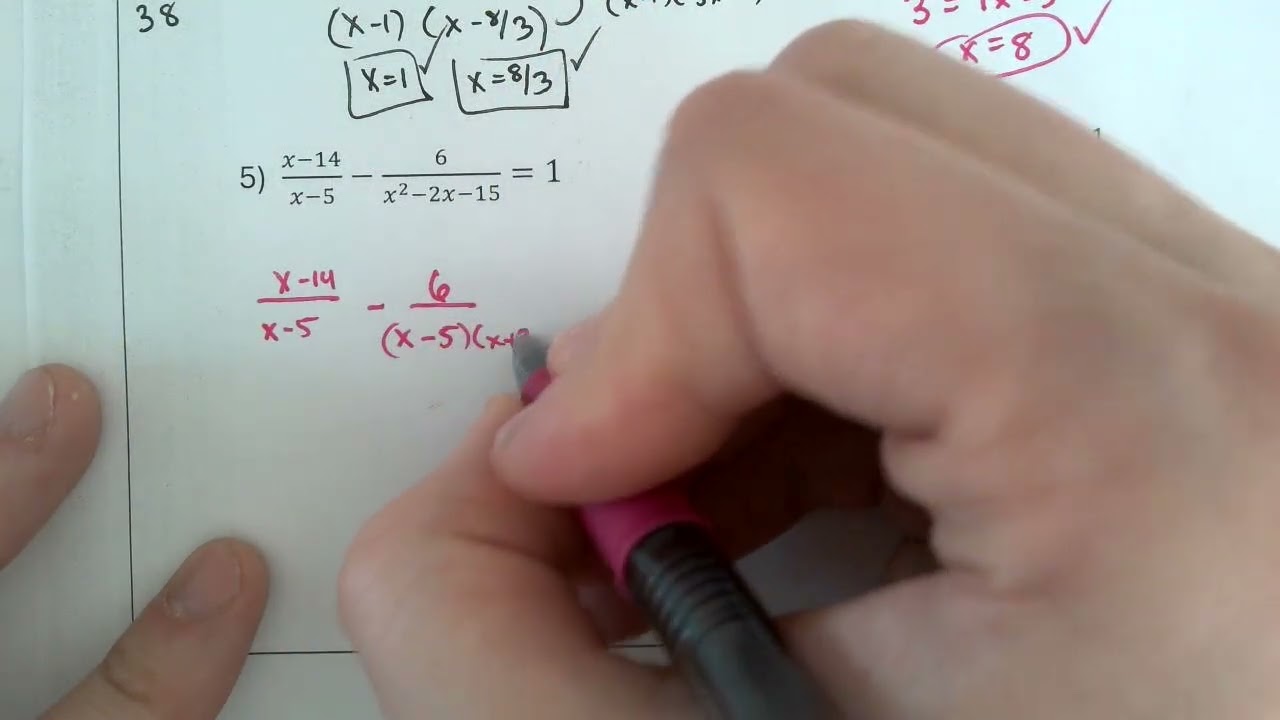 38
(x-1) (x-8/3)
x=1 x=8/3
x=8
5) \frac{x-14}{x-5} - \frac{6}{x^2-2x-15} = 1
\frac{x-14}{x-5} - \frac{6}{(x-5)(x+